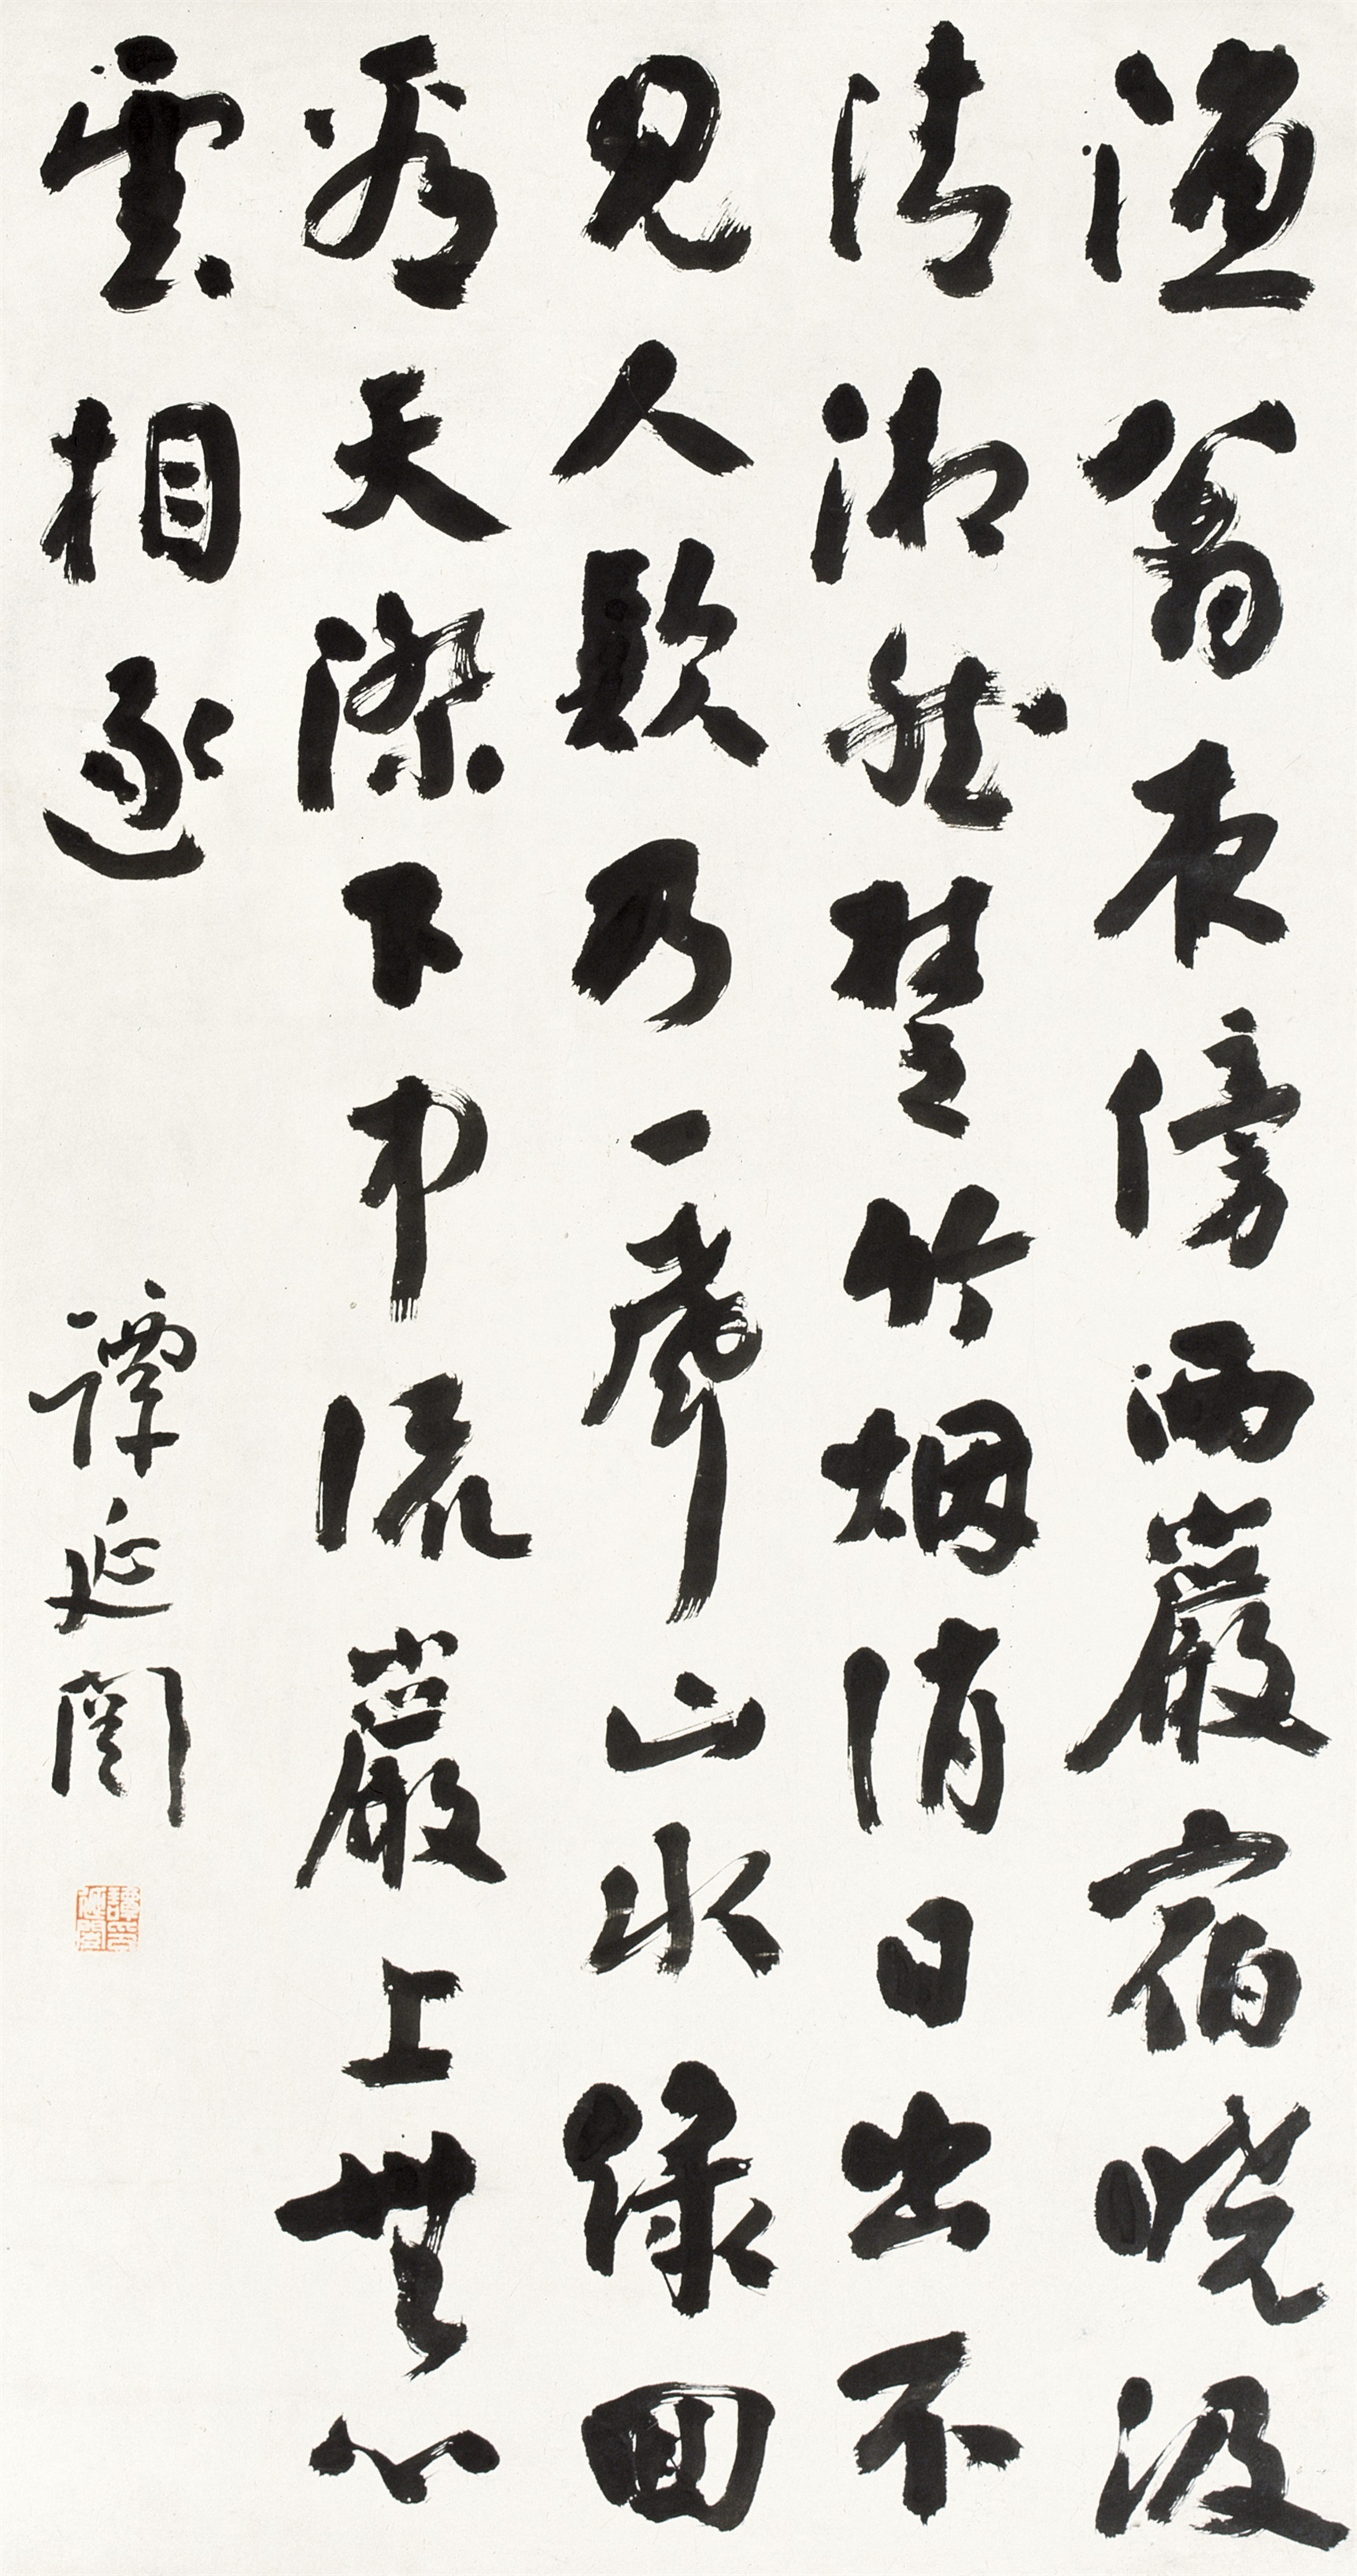 漁翁夜傍西巖宿曉汲
清湘然楚竹烟消日出不
見人欸乃一聲山水綠回
看天際下中流巖上無心
雲相逐
譚延闓
譚延闓印